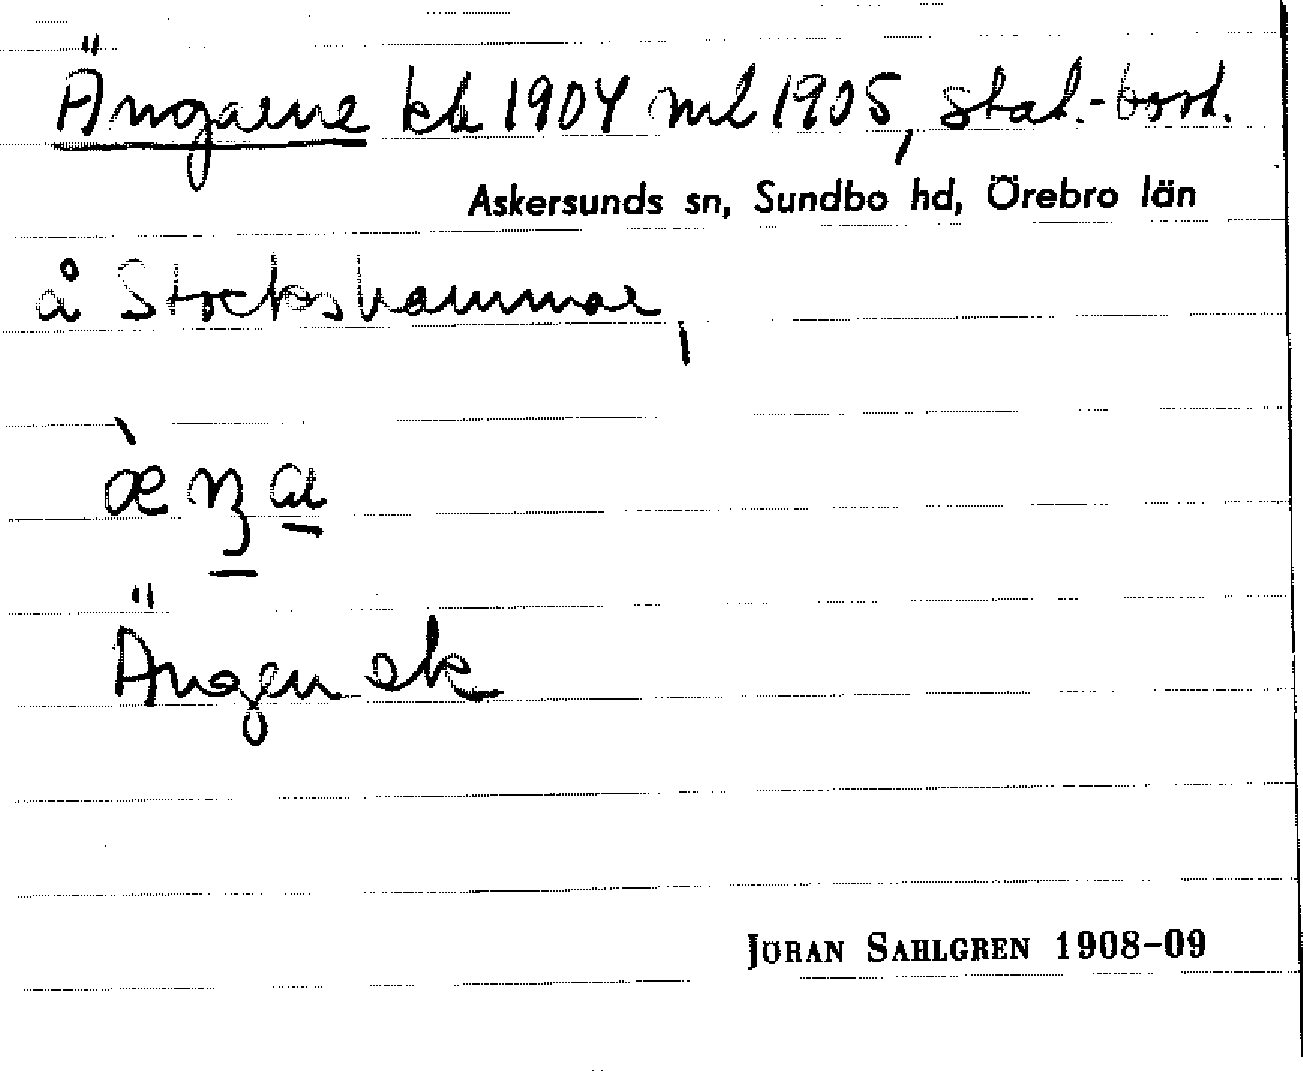 Ängarne kh 1904 ml 1905, stat.-bost.
Askersunds sn, Sundbo hd, Örebro län
å Stockshammar,
æ̀ŋa
Ängen ek
JÖRAN SAHLGREN 1908-09